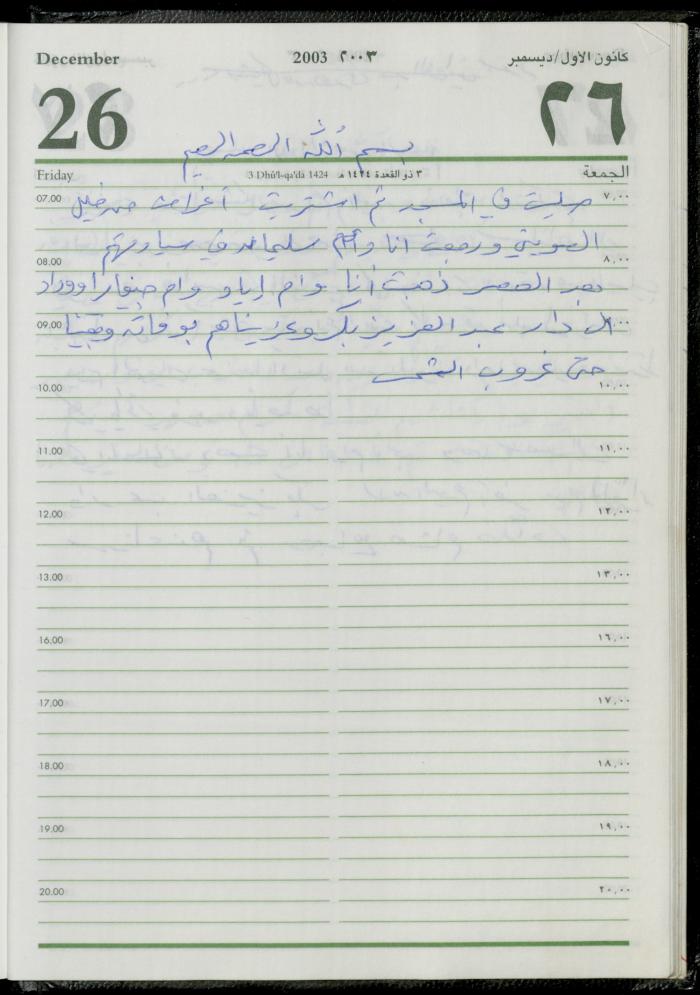 December 2003 ٢٠٠٣ كانون الاول/ديسمبر
26 ٢٦
بسم الله الرحمن الرحيم
Friday 3 Dhû'l-qa'da 1424 ٣ ذو القعدة ١٤٢٤ هـ الجمعة
07.00 ٧,٠٠
صليت في المسجد ثم اشتريت أغراض من خليل
الصويتي ورجعت انا وأم سليمان في سيارتهم
08.00 ٨,٠٠
بعد العصر ذهبت أنا وام إياد وام
09.00 ٩,٠٠
الى دار عبد العزيز بكر وعزيناهم بوفاته وبقينا
حتى غروب الشمس
10.00 ١٠,٠٠
11.00 ١١,٠٠
12.00 ١٢,٠٠
13.00 ١٣,٠٠
16.00 ١٦,٠٠
17.00 ١٧,٠٠
18.00 ١٨,٠٠
19.00 ١٩,٠٠
20.00 ٢٠,٠٠